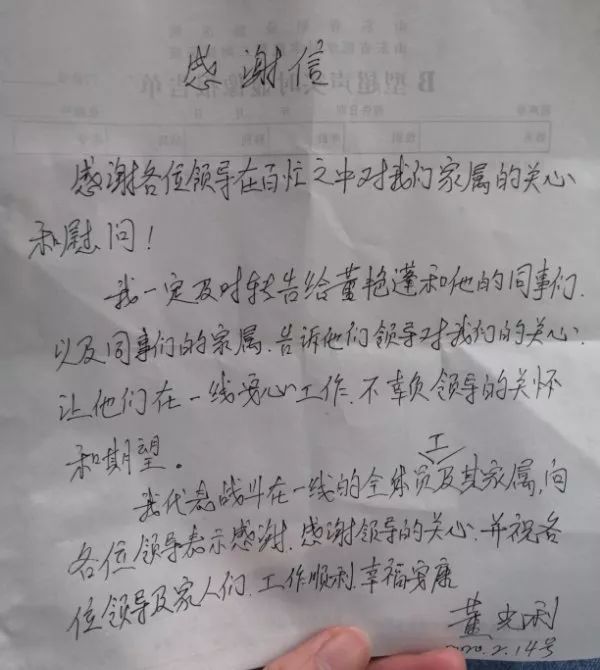 感谢信
感谢各位领导在百忙之中对我们家属的关心
和慰问!
我一定及时转告给董艳蓬和他的同事们.
以及同事们的家属.告诉他们领导对我们的关心.
让他们在一线安心工作.不辜负领导的关怀
和期望。
我代表战斗在一线的全体员工及其家属,向
各位领导表示感谢.感谢领导的关心.并祝各
位领导及家人们.工作顺利.幸福安康
董光
2020.2.14号